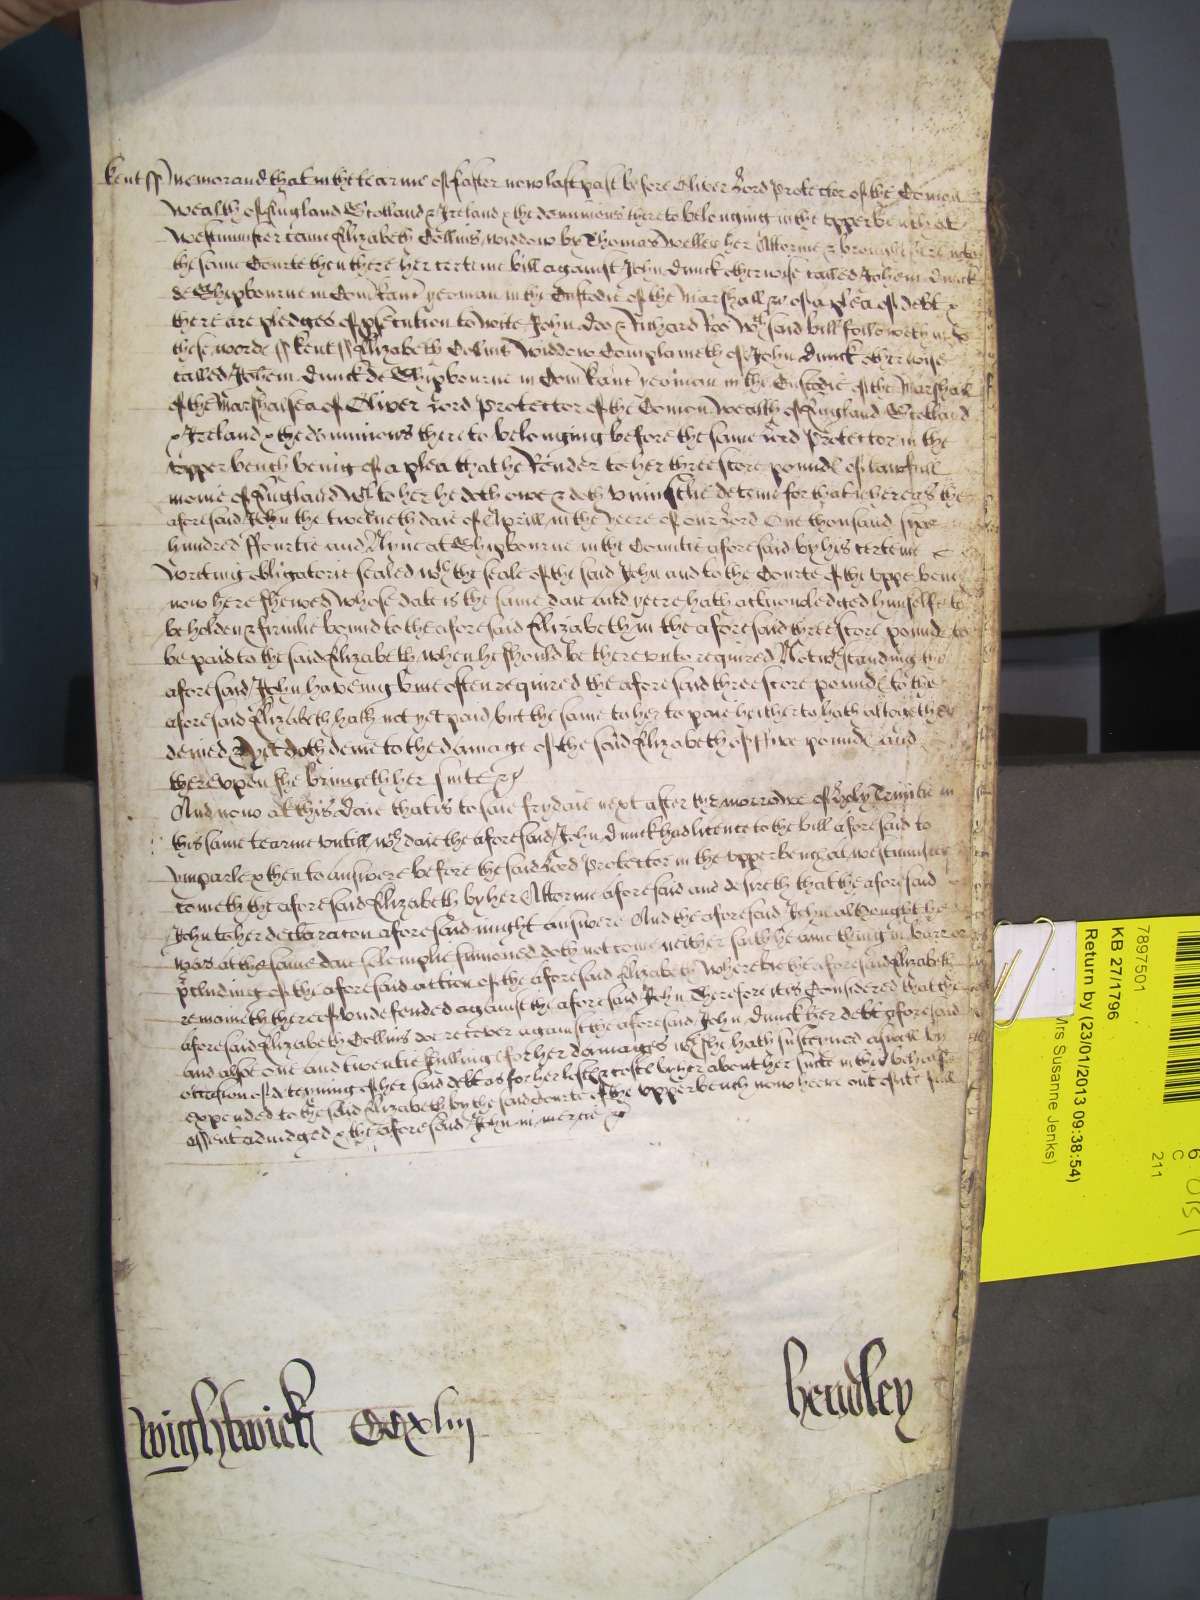 Kent ss Memorand that in the tearme of Easter now last past before Oliver Lord Protector of the Comon
wealth of England Scotland & Ireland & the dominions thereto belonging in the upper bench at
Westminster came Elizabeth Collins widdow by Thomas Weller her Attorne & brought here into
the same Courte then there her certeine bill against John Duncke otherwise called Johem Duncke
de Shipbourne in Com Kanc yeoman in the Custodie of the Marshall &c of a plea of debt &
there are pledges of psecution to witte John Doo & Richard Roo wch said bill followeth in
these words ss Kent ss Elizabeth Collins widdow Complaineth of John Dunck otherwise
called Johem Dunck de Shipbourne in Com Kanc yeoman in the Custodie of the Marshall
of the Marshalsea of Oliver Lord Protector of the Comon wealth of England Scotland
& Ireland & the dominions thereto belonging before the same Lord Protector in the
upper bench being of a plea that he Render to her threescore pounds of lawfull
monie of England wch to her he doth owe & doth uniustlie deteine for that whereas the
aforesaid John the twelveth daie of Aprill in the yeere of our Lord One thousand sixe
hundred ffourtie and Nyne at Shipbourne in the Countie aforesaid by his certeine
Writing obligatorie sealed wth the seale of the said John and to the Courte of the upper bench
now here shewed whose date is the same daie and yeere hath acknowledged himselfe to
be holden & firmlie bound to the aforesaid Elizabeth in the aforesaid threescore pounds to
be paid to the said Elizabeth when he should be thereunto required Notwthstanding the
aforesaid John haveing bine often required the aforesaid threescore pounds to the
aforesaid Elizabeth hath not yet paid but the same to her to paie heitherto hath altogether
denied & yet doth denie to the damage of the said Elizabeth of five pounds and
thereupon she bringeth her suite &c
And now at this Daie that is to saie frydaie next after the morrowe of Holy Trinitie in
this same tearme untill wch daie the aforesaid John Dunck had licence to the bill aforesaid to
imparle & then to answere before the said Lord Protector in the upper bench at westminster
cometh the aforesaid Elizabeth by her Attorne aforesaid and desireth that the aforesaid
John to her declaracon aforesaid might answere And the aforesaid John althought he
was at the same daie solemplie sumoned doth not come neither saith he anie thing in barr or
pcluding of the aforesaid action of the aforesaid Elizabeth whereby the aforesaid Elizabeth
remaineth thereof undefended against the aforesaid John Therefore it is Considered that the
aforesaid Elizabeth Collins doe recever against the aforesaid John Dunck her debt aforesaid
and alsoe one and twentie shillings for her damages wch she hath susteined aswell by
occasion of deteyning of her said debt as for her costs & by her about her suite in this behalf
expended to the said Elizabeth by the said Courte of the upper bench now heere out of its full
assent adiudged & the aforesaid John in mercie &c
Wightwick CCxliij
Henley
7897501
KB 27/1796
Return by (23/01/2013 09:38:54)
Mrs Susanne Jenks)
C
211